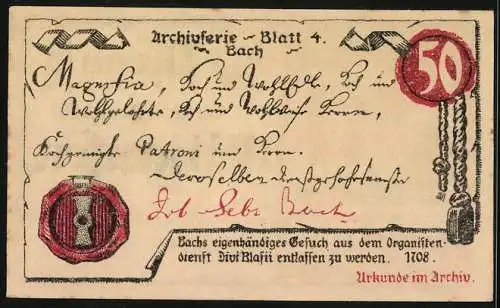 Archivserie - Blatt 4.
Bach
50
Magnifici, Hoch und Wohl Edle, Hoch und
Wohlgelahrte, Hoch und Wohlweise Herren,
Hochgeneigte Patroni und Herren.
Deroselben dienstgehorsamste
Joh Sebs Bach
Bachs eigenhändiges Gesuch aus dem Organisten-
dienst Divi Blasii entlassen zu werden. 1708.
Urkunde im Archiv.